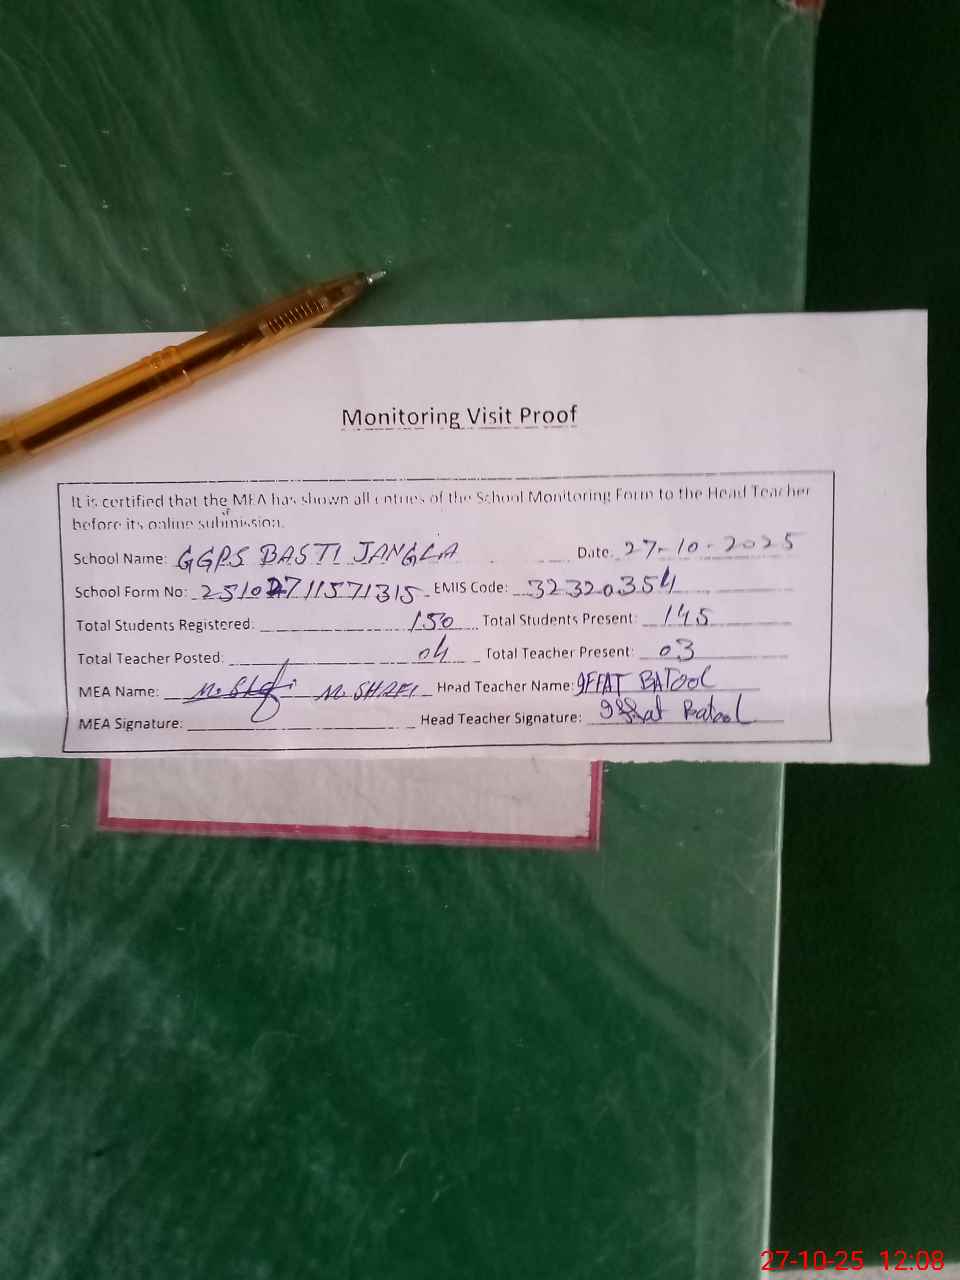 Monitoring Visit Proof
It is certified that the MEA has shown all entries of the School Monitoring Form to the Head Teacher
before its online submission.
School Name: GGPS BASTI JANGLA Date: 27-10-2025
School Form No: 25102711571315 EMIS Code: 32320354
Total Students Registered: 150 Total Students Present: 145
Total Teacher Posted: 04 Total Teacher Present: 03
MEA Name: M. Shafi M. SHAFI Head Teacher Name: IFFAT BATOOL
MEA Signature: Head Teacher Signature: Iffat Batool
27-10-25 12:08